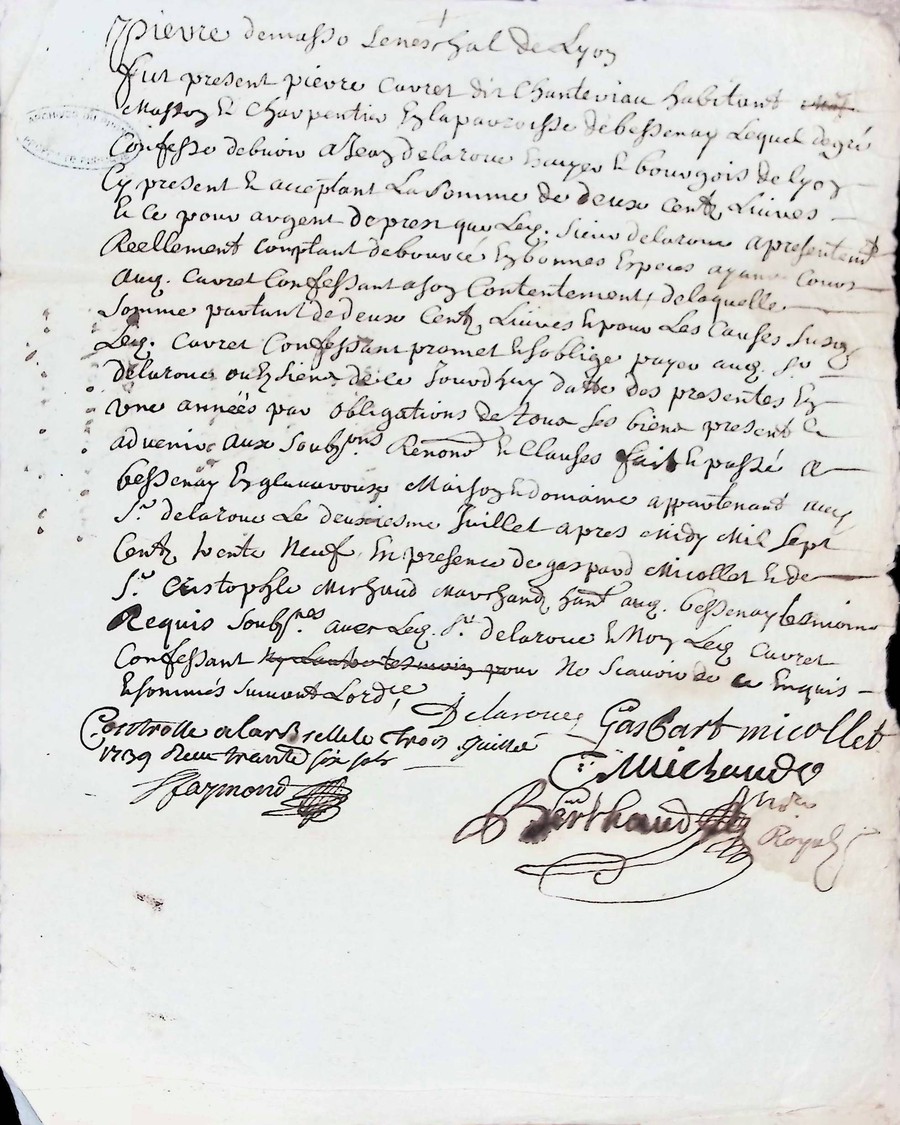 pierre demasso seneschal de Lyon
fut present pierre Cuvret dit Chanteviau habitant
Masson et Charpentier en la parroisse de bessenay Lequel de gré
Confesse debvoir a Jean delaroue Escuyer et bourgois de lyon
Cy present et acceptant La somme de deux Centz Livres
et ce pour argent de prest que Leq. sieur delaroue a presentemt
Reellement comptant deboursé En bonnes Especes ayant cours
auq. Cuvret Confessant a son Contentement, delaquelle
somme partant de deux Centz Livres et pour Les Causes susd
Leq. Cuvret Confessant promet et soblige payer auq. Sr
delaroue ou Es siens de ce Jourdhuy datte des presentes En
une années par obligations de tous ses biens present et
advenir aux soubsons Renond et Clauses fait et passé a
bessenay En Maison et domaine appartenant auq
Sr delaroue Le deuxiesme Juillet apres midy Mil sept
Centz trente Neuf En presence de gaspard Micollet et de
Sr Cristophle Michaud Marchand hant auq. bessenay tesmoins
Requis soubsnes avec Leq. Sr delaroue et Moy Leq Cuvret
Confessant pour Ne scavoir de ce Enquis
et sommés suivant Lordce
Delaroue Gasbart micollet
Controllé a larbrelle le trois Juillet
1739 Receu trante six sols
C. Michaud
Raymond
Berthaud Nore
Royal